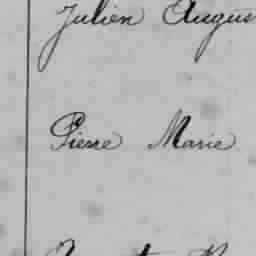 Julien Augus
Pierre Marie